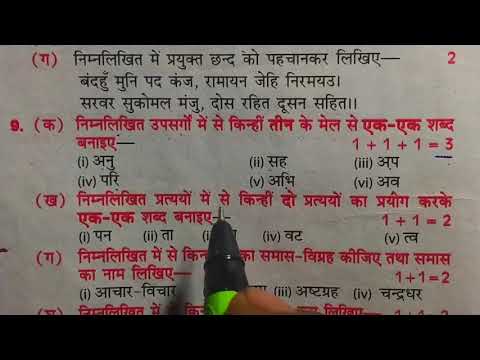 (ग) निम्नलिखित में प्रयुक्त छन्द को पहचानकर लिखिए— 2
बंदहुँ मुनि पद कंज, रामायन जेहि निरमयउ।
सरवर सुकोमल मंजु, दोस रहित दूसन सहित।।
9. (क) निम्नलिखित उपसर्गों में से किन्हीं तीन के मेल से एक-एक शब्द
बनाइए— 1 + 1 + 1 = 3
(i) अनु (ii) सह (iii) अप
(iv) परि (v) अभि (vi) अव
(ख) निम्नलिखित प्रत्ययों में से किन्हीं दो प्रत्ययों का प्रयोग करके
एक-एक शब्द बनाइए— 1 + 1 = 2
(i) पन (ii) ता (iv) वट (v) त्व
(ग) निम्नलिखित में से का समास-विग्रह कीजिए तथा समास
का नाम लिखिए— 1+1=2
(i) आचार-विचार (iii) अष्टग्रह (iv) चन्द्रधर